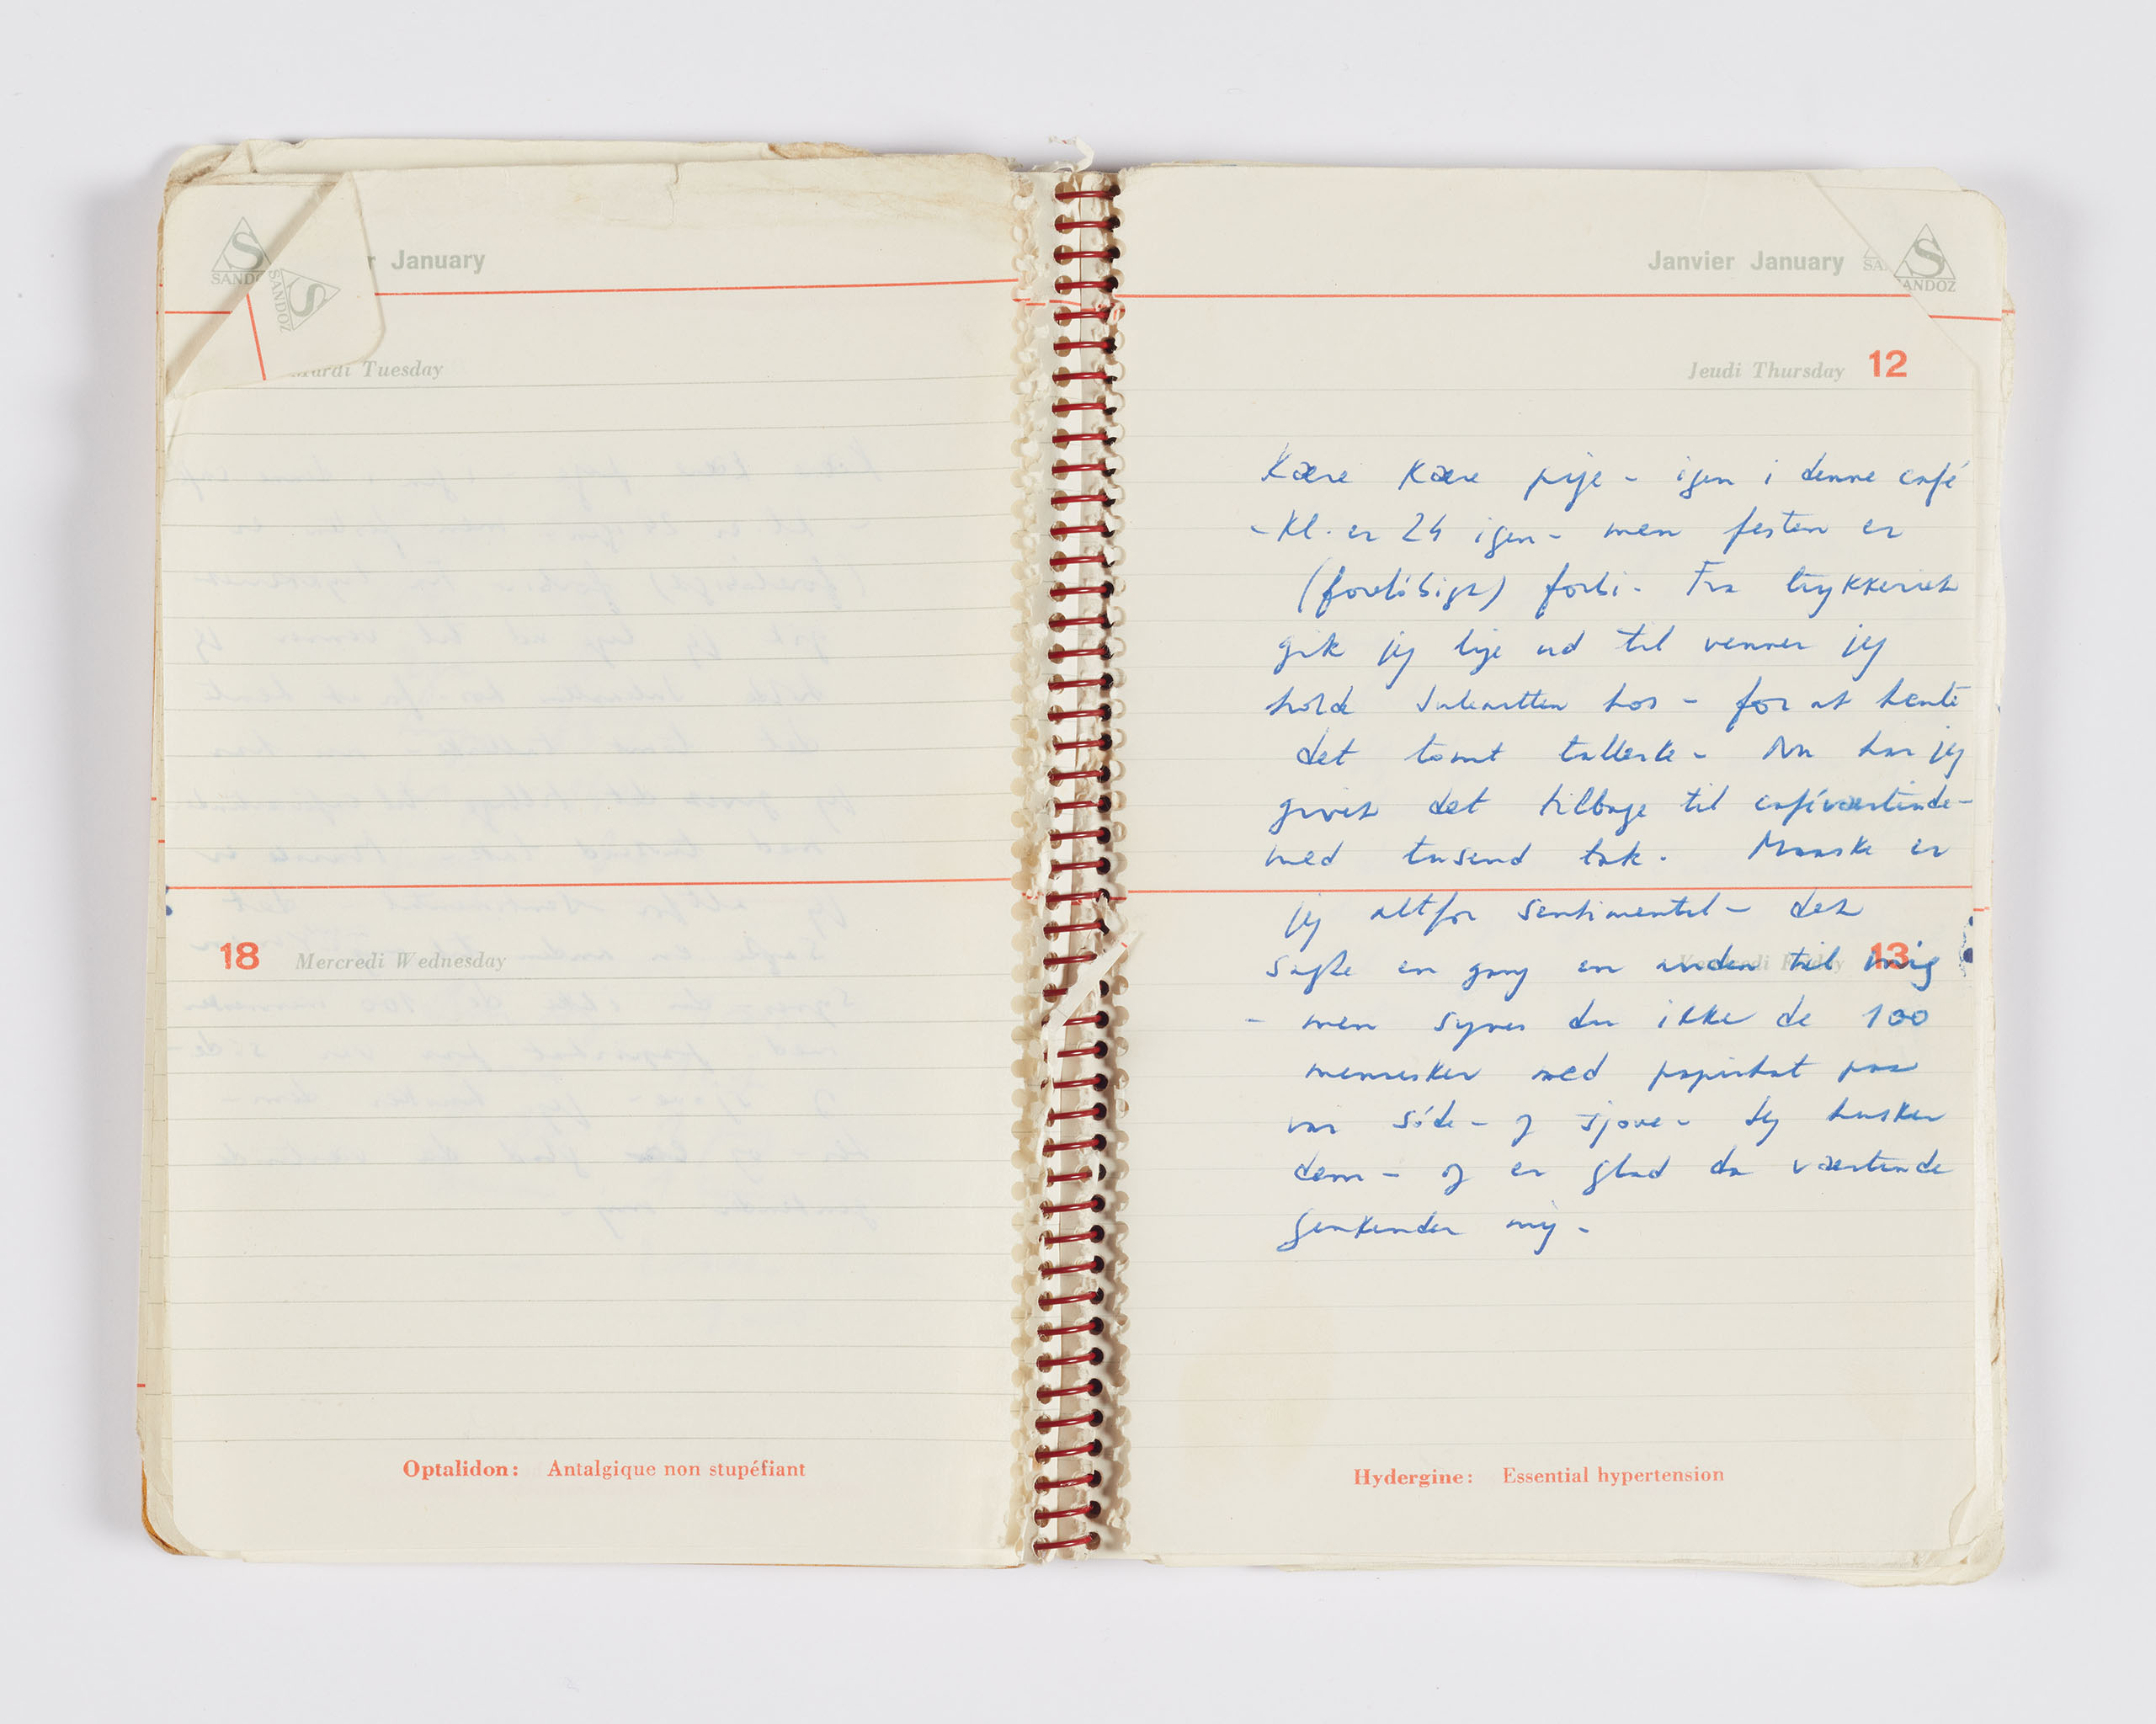 SANDOZ
SANDOZ
January
Mardi Tuesday
18 Mercredi Wednesday
Optalidon: Antalgique non stupéfiant
Janvier January
SANDOZ
Jeudi Thursday 12
Kære Kære pije - igen i denne café
- Kl. er 24 igen - men festen er
(foreløbigt) forbi - Fra trykkeriet
gik jeg lige ud til venner jeg
holdt Juleaften hos - for at hente
det tomt tallerk - Nu har jeg
givet det tilbage til caféværtinde -
med tusend tak. Maaske er
jeg altfor sentimental - det
sagte en gang en anden til mig
13
- men synes du ikke de 100
mennesker med papirhat paa
var søde - og sjove - Jeg husker
dem - og er glad da værtinde
genkender mig -
Hydergine: Essential hypertension